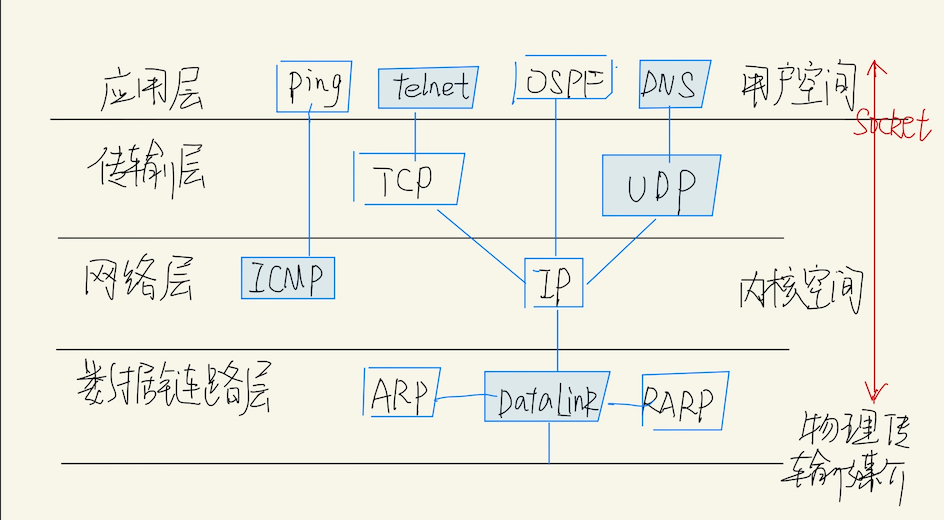 应用层 Ping telnet OSPF DNS 用户空间
Socket
传输层 TCP UDP
网络层 ICMP IP 内核空间
数据链路层 ARP DataLink RARP
物理传
输媒介